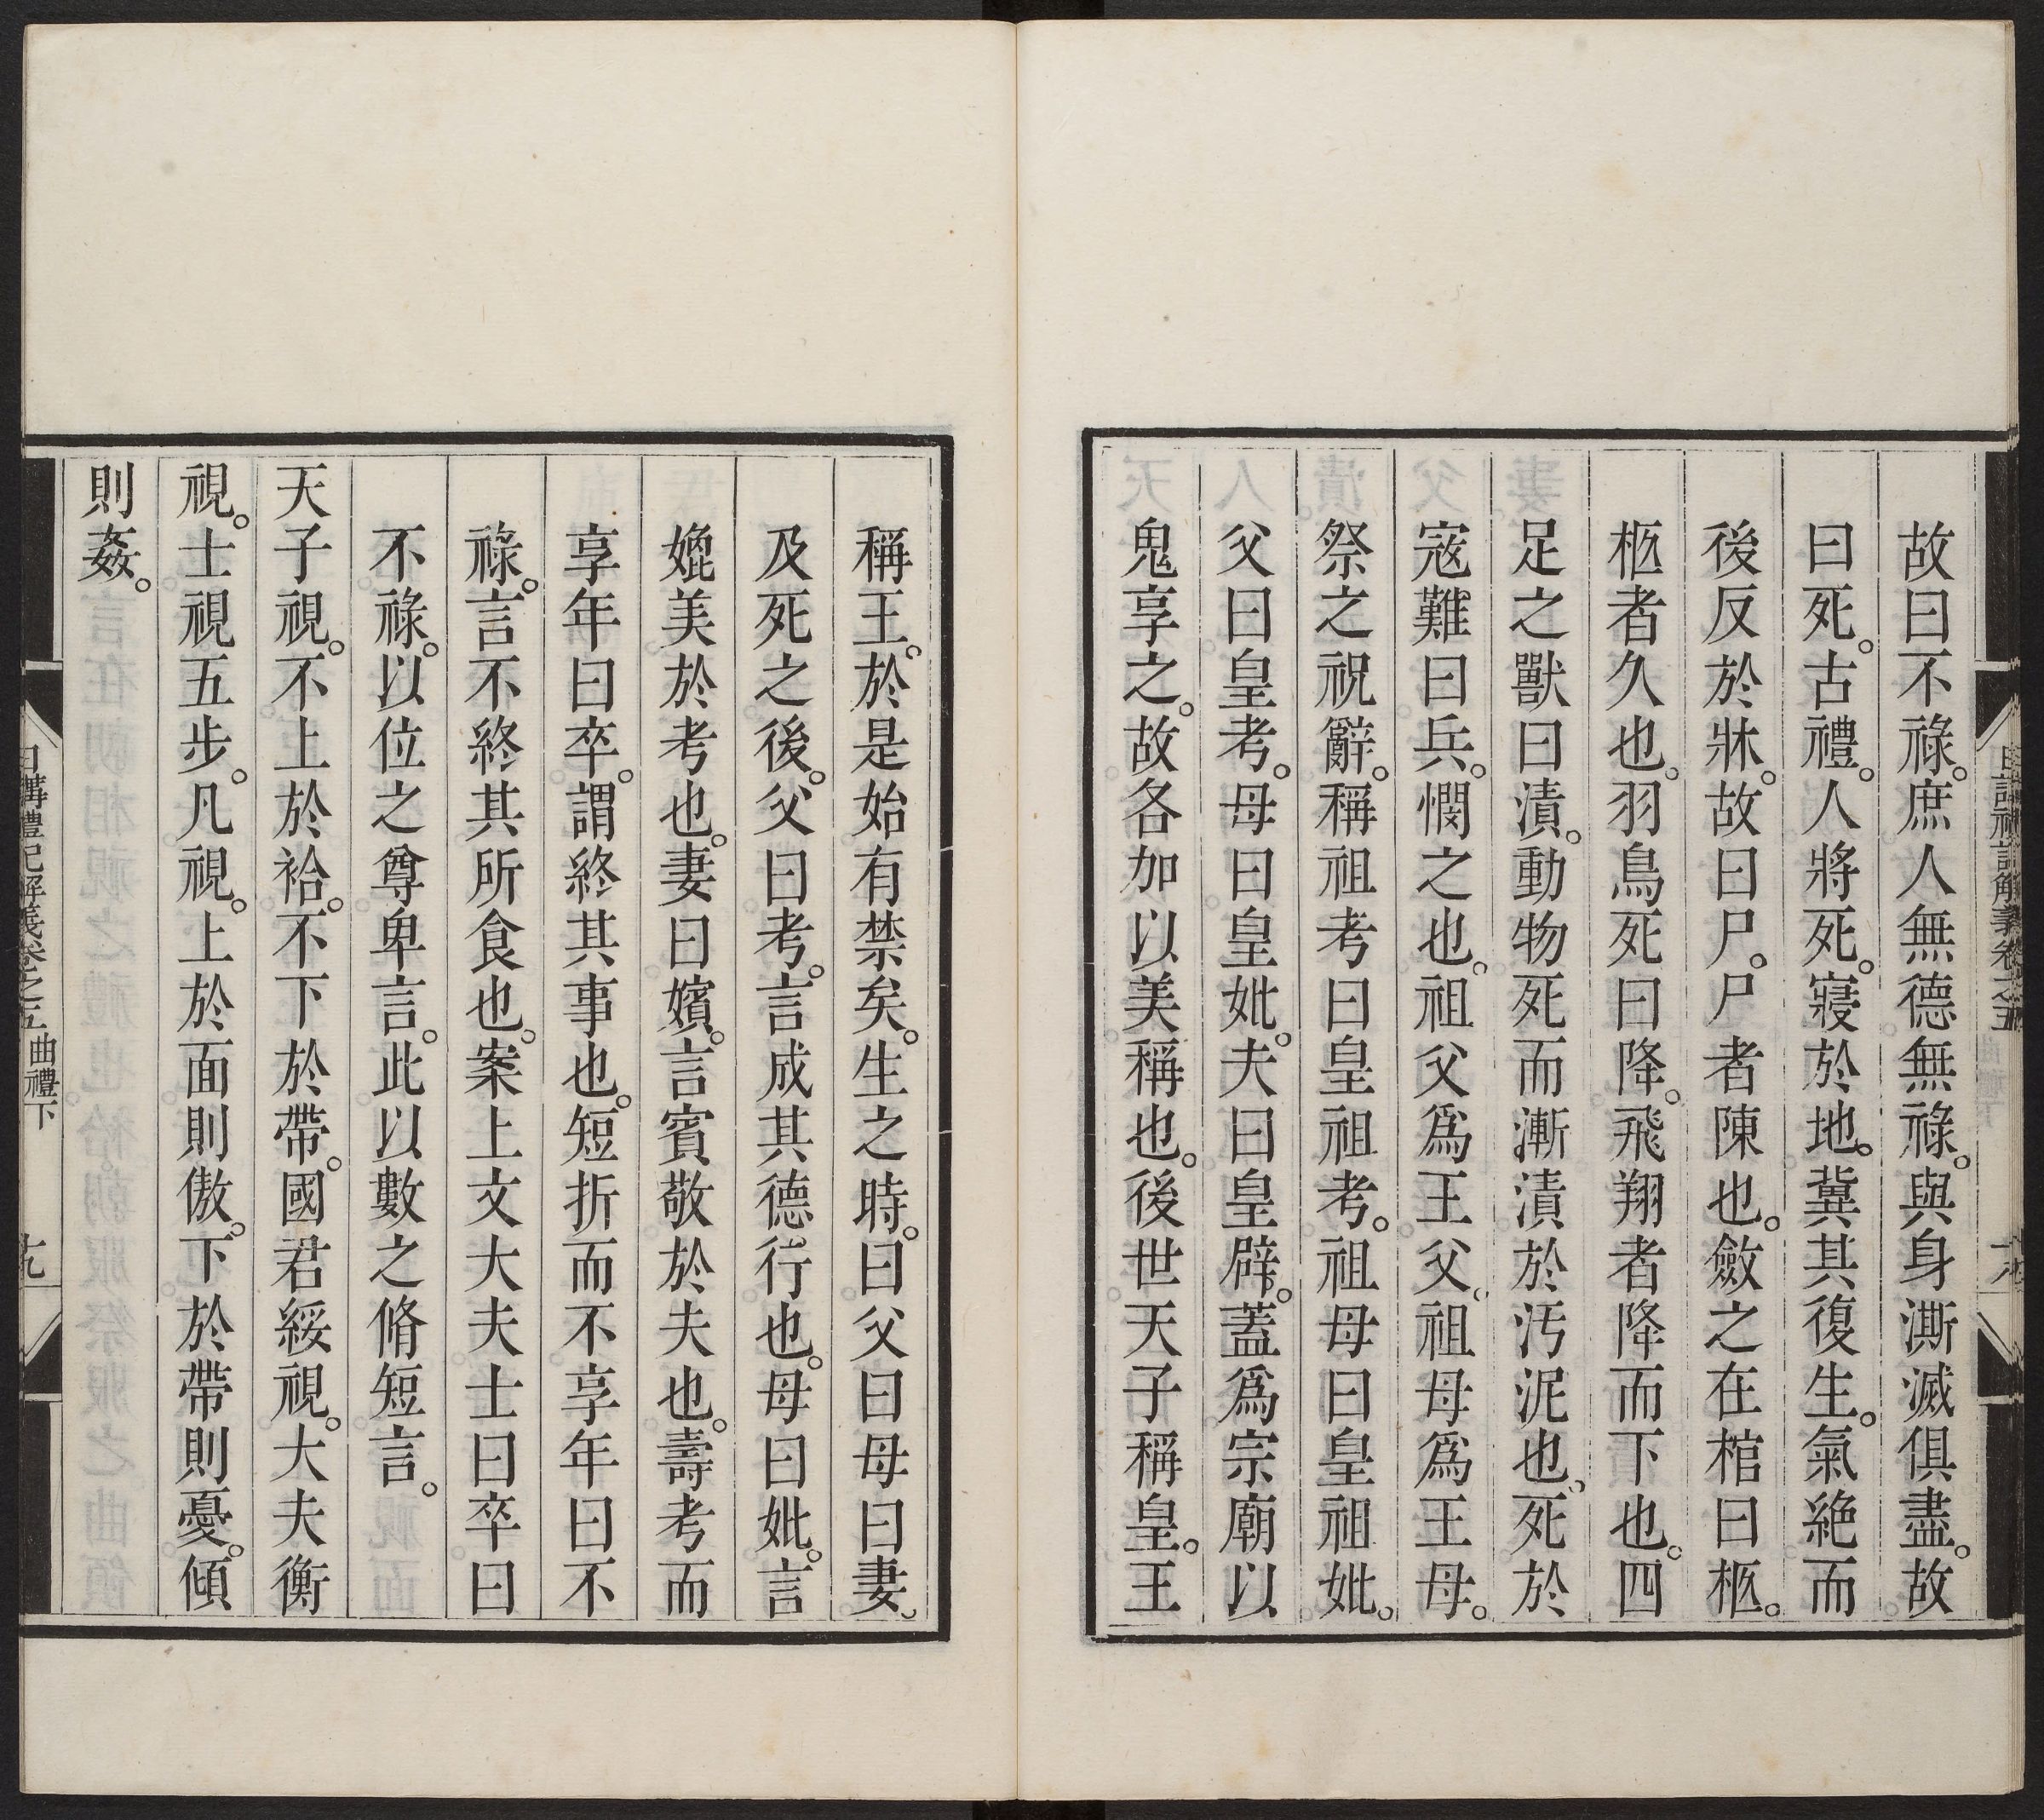 故曰不祿。庶人無德無祿。與身澌滅俱盡。故
曰死。古禮。人將死。寢於地。冀其復生。氣絶而
後反於牀。故曰尸。尸者陳也。斂之在棺曰柩。
柩者久也。羽鳥死曰降。飛翔者降而下也。四
足之獸曰漬。動物死而漸漬於汚泥也。死於
寇難曰兵。憫之也。祖父爲王父。祖母爲王母。
祭之祝辭。稱祖考曰皇祖考。祖母曰皇祖妣。
父曰皇考。母曰皇妣。夫曰皇辟。蓋爲宗廟以
鬼享之。故各加以美稱也。後世天子稱皇。王
稱王。於是始有禁矣。生之時。曰父曰母曰妻。
及死之後。父曰考。言成其德行也。母曰妣。言
媲美於考也。妻曰嬪。言賓敬於夫也。壽考而
享年曰卒。謂終其事也。短折而不享年曰不
祿。言不終其所食也。案上文大夫士曰卒曰
不祿。以位之尊卑言。此以數之脩短言。
天子視。不上於袷。不下於帶。國君綏視。大夫衡
視。士視五步。凡視。上於面則傲。下於帶則憂。傾
則姦。
日講禮記解義卷之五 曲禮下 十九